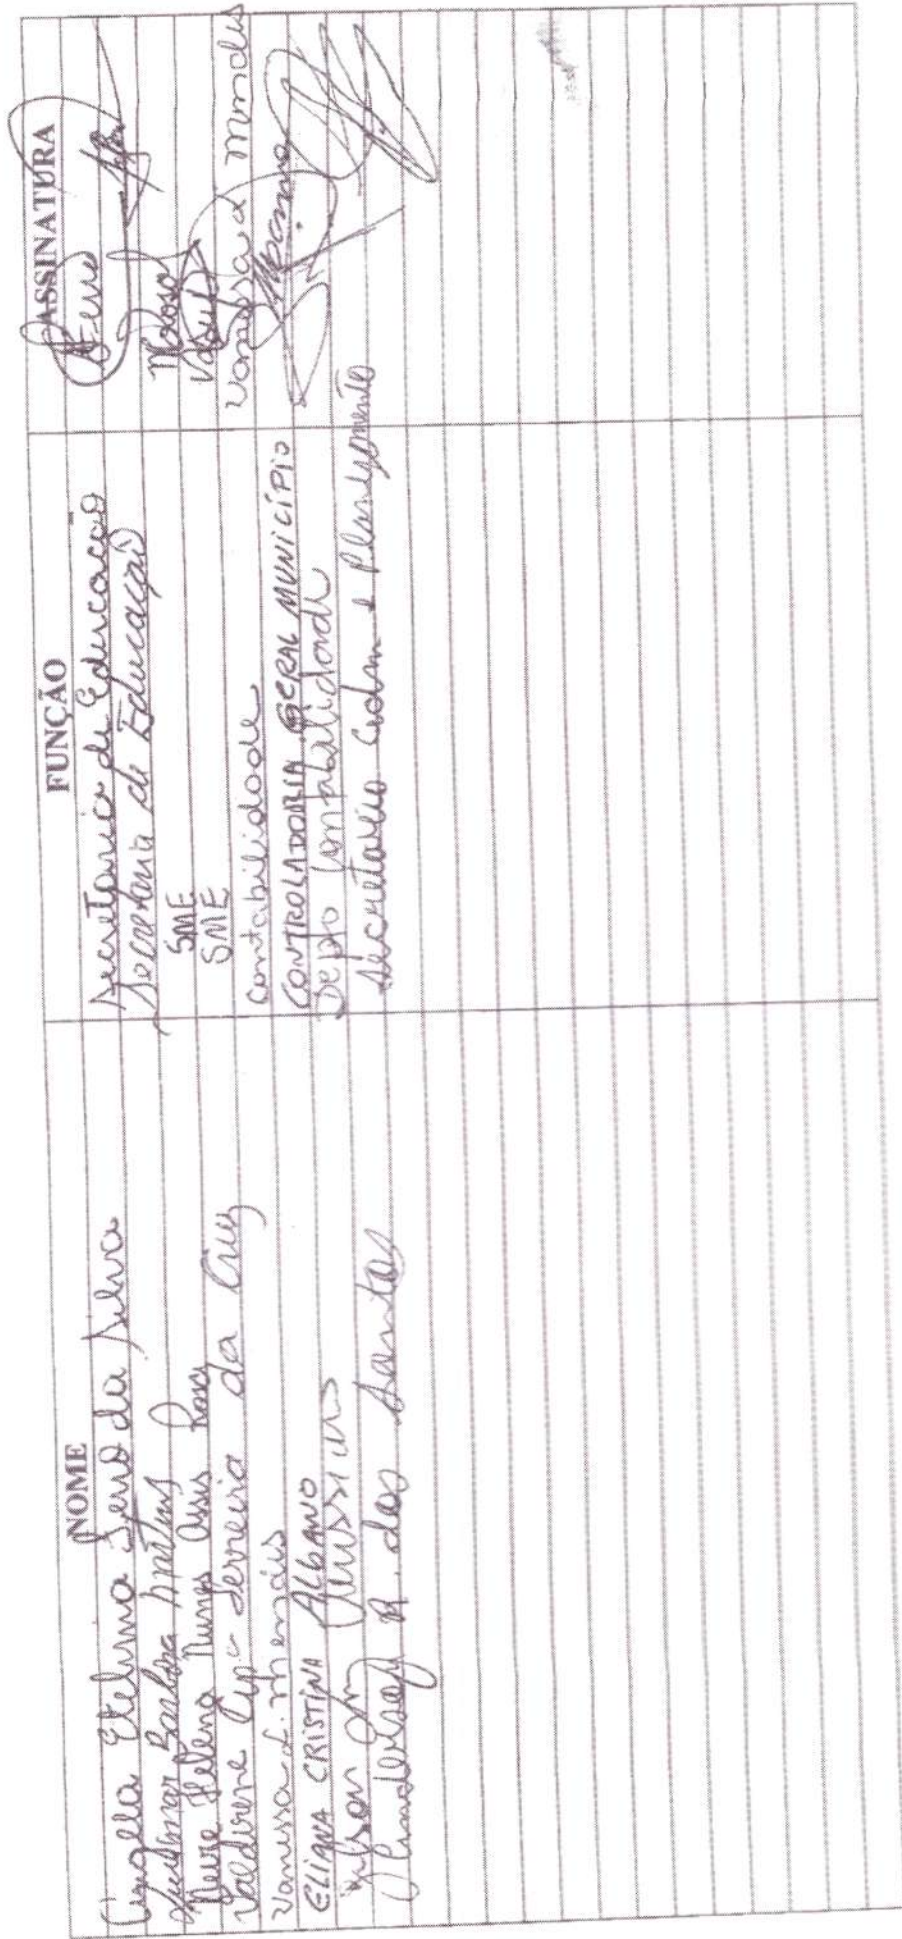 NOME FUNÇÃO ASSINATURA
Angela Etelvina Servo da Silva Secretaria de Educação Servo
Barbosa Martins Secretaria de Educação
Neuse Helena Nunes Assis Rosa SME Rosa
Valdirene Ap. Ferreira da Cruz SME
Vanissa L. Mendes Contabilidade Vanissa L Mendes
ELIANA CRISTINA ALBANO CONTROLADORIA GERAL MUNICÍPIO
Depto Contabilidade
Anderson R. dos Santos Secretario Adm e Planejamento